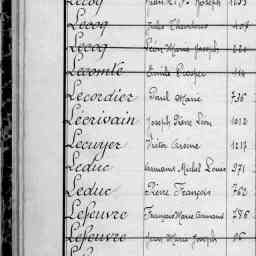 Lecoq Joseph
Lecoq Jules
Lecoq Jean Marie Joseph
Lecomte Emile
Lecordier Paul Marie 736
Lecrivain Joseph Pierre Léon 1012
Lecuyer Victor 1217
Leduc Armand Michel Louis 971
Leduc Pierre François 762
Lefeuvre François Marie Armand 786
Lefeuvre Jean Marie Joseph